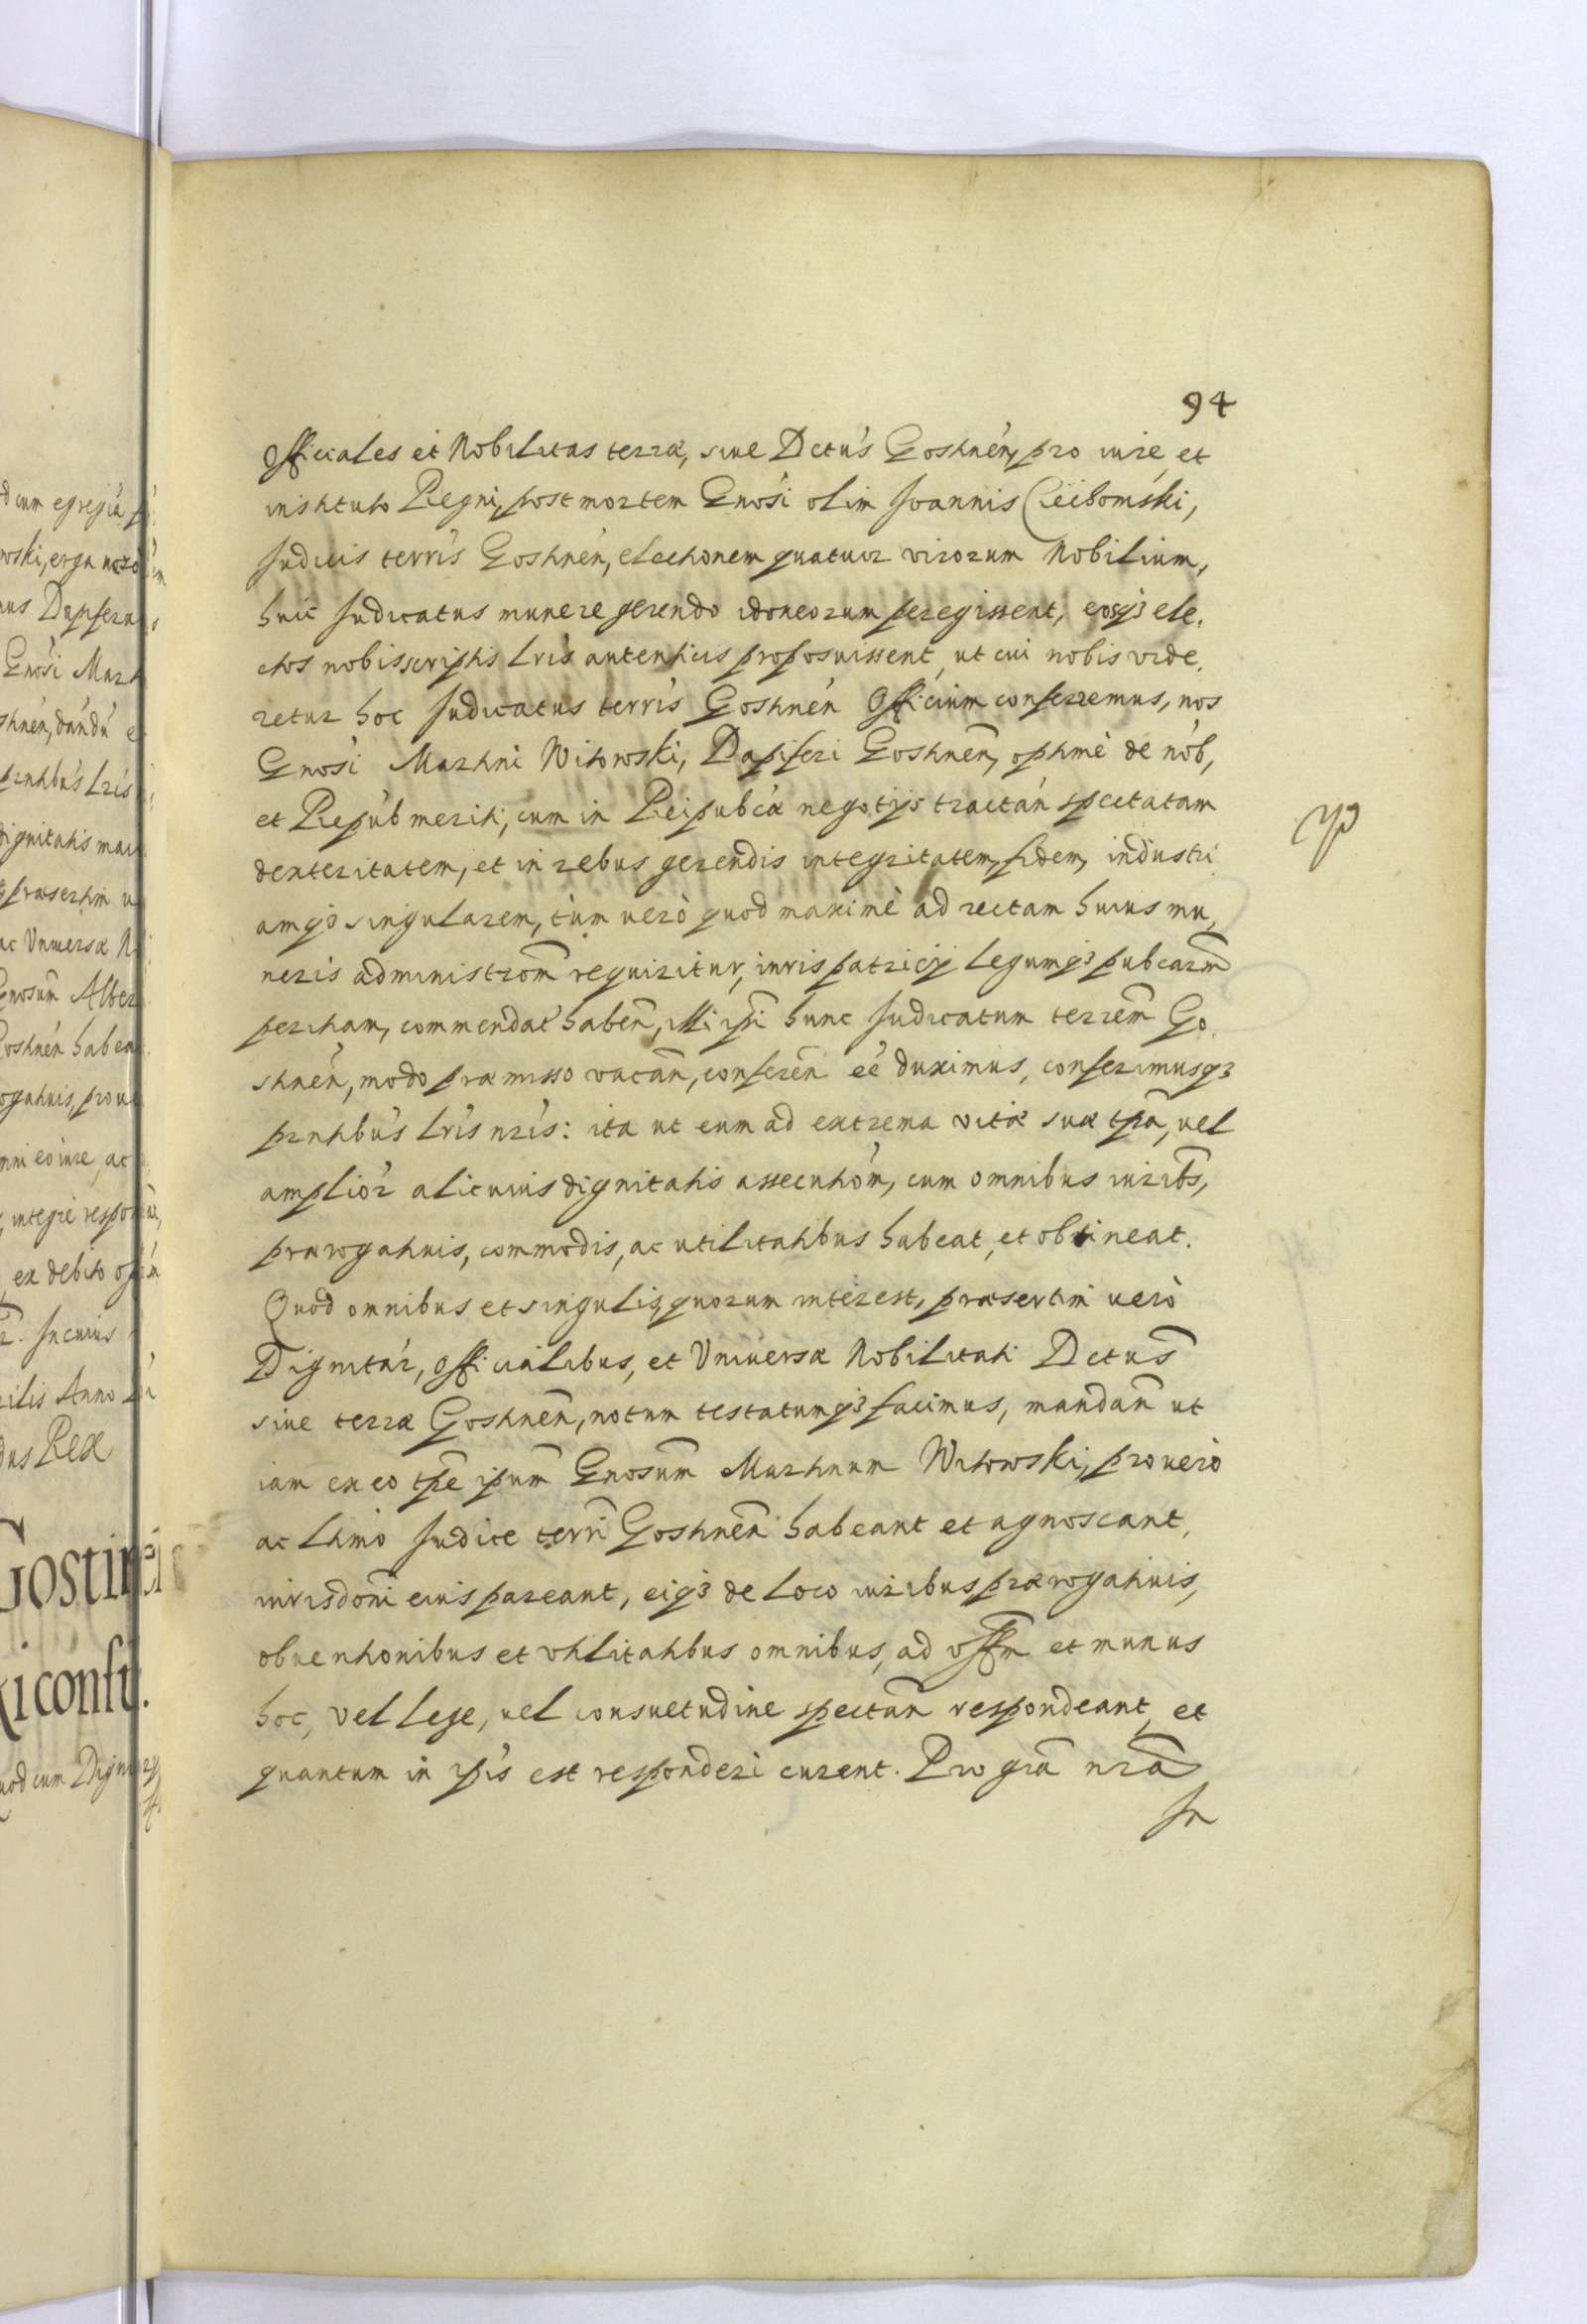 94
Officiales et Nobilitas terræ, siue Dctus Gostinen, pro iure, et
instituto Regni, post mortem Gnosi olim Joannis
Judicis terris Gostinen, electionem quatuor virorum Nobilium,
huic Judicatus munere gerendo idoneorum peregissent, eosq3 ele,
ctos nobis scriptis Lris autenticis proposuissent, ut cui nobis vide,
retur hoc Judicatus terris Gostinen Officium conferremus, nos
Gnosi Martini Witowski, Dapiferi Gostinen, optimè de nob,
et Repub meriti, cum in Reipubcæ negotijs tractan spectatam
dexteritatem, et in rebus gerendis integritatem, fidem, industri
amq3 singularem, tùm uerò quod maximè ad rectam huius mu,
neris administrom requiritur, iuris patrij Legumq3 pubcarm
peritiam, commendat haben, illi ipsi hunc Judicatum terrem Go,
stinen, modo præmisso vacan, conferen eé duximus, conferimusq3
prntibus Lris nris: ita ut eum ad extrema vitæ suæ tpa, uel
amplior alicuius dignitatis assecutiom, cum omnibus iuribs,
prærogatiuis, commodis, ac utilitatibus habeat, et obtineat.
Quod omnibus et singulis, quorum interest, præsertim uerò
Dignitar, Officialibus, et Vniuersæ Nobilitati Dctus
siue terræ Gostinen, notum testatumq3 facimus, mandan ut
iam ex eo tpe ipum Gnosum Martinum Witowski, pro uerò
ac Ltimo Judice terri Gostinen habeant et agnoscant,
iurisdoni eius pareant, eiq3 de loco iuribus prærogatiuis,
obuentionibus et vtilitatibus omnibus, ad offm et munus
hoc, vel lege, uel consuetudine spectan respondeant, et
quantum in ipis est responderi curent. Pro gra nra
In